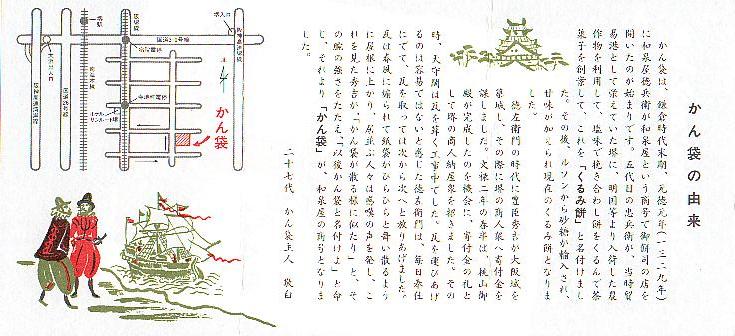 かん袋の由来
かん袋は、鎌倉時代末期、元徳元年(一三二九年)
に和泉屋徳兵衛が和泉屋という商号で御餅司の店を
開いたのが始まりです。五代目の忠兵衛が、当時貿
易港として栄えていた堺に、明国等より入荷した農
作物を利用して、塩味で挽き合わし餅をくるんで茶
菓子を創案して、これを「くるみ餅」と名付けまし
た。その後、ルソンから砂糖が輸入され、
甘味が加えられ現在のくるみ餅となりま
した。
徳左衛門の時代に豊臣秀吉が大阪城を
築城し、その際に堺の商人衆へ寄付金を
課しました。文禄二年の春半ば、桃山御
殿が完成したのを機会に、寄付金の礼と
して堺の商人納屋衆を招きました。その
時、天守閣は瓦を葺く工事中でした。瓦を運びあげ
るのは容易ではないと感じた徳左衛門は、毎日奉仕
にでて、瓦を取っては次から次へと放りあげました。
瓦は春風に煽られて紙袋がひらひらと舞い散るよう
に屋根に上がり、居並ぶ人々は感嘆の声を発し、こ
れを見た秀吉が「かん袋が散る様に似たり」と、そ
の腕の強さをたたえ「以後かん袋と名付けよ」と命
じ、それより「かん袋」が、和泉屋の商号となりま
した。
二十七代 かん袋主人 敬白
かん袋
堺駅